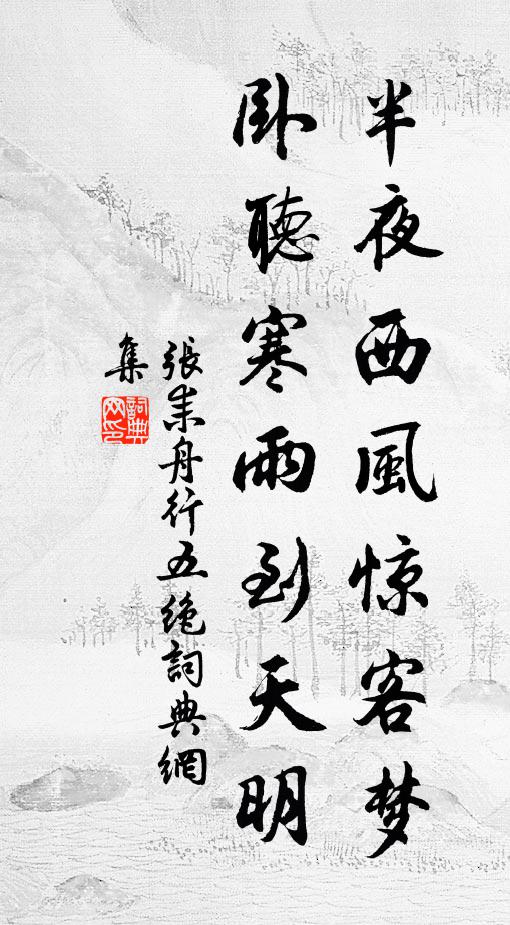 半夜西風惊客梦
卧聽寒雨到天明
張耒舟行五絶詞典網
集
詞典
网印